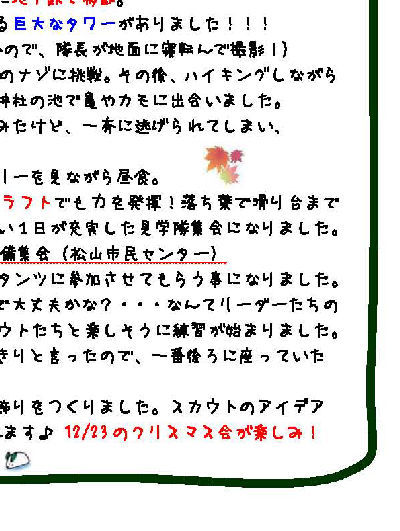 る巨大なタワーがありました！！！
ので、隊長が地面に寝転んで撮影！）
のナゾに挑戦。その後、ハイキングしながら
神社の池で亀やカモに出会いました。
みたけど、一斉に逃げられてしまい、
リーを見ながら昼食。
ラフトでも力を発揮！落ち葉で滑り台まで
い１日が充実した見学隊集会になりました。
備集会（松山市民センター）
タンツに参加させてもらう事になりました。
で大丈夫かな？・・・なんてリーダーたちの
ウトたちと楽しそうに練習が始まりました。
きりと言ったので、一番後ろに座っていた
飾りをつくりました。スカウトのアイデア
ます♪ 12/23のクリスマス会が楽しみ！